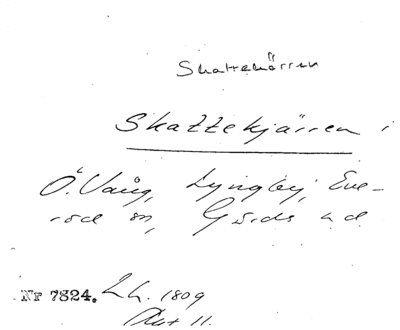 Skattekärren
Skattekjärren i
Ö. Vång, Lyngby, Eve-
röd sn, Gärds hd
Nr 7824. L.h. 1809
Akt 11.